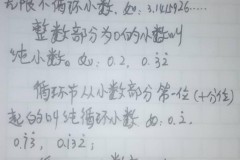 无限不循环小数.如:3.1415926……
整数部分为0的小数叫
纯小数。如:0.2, 0.3̇2̇
循环节从小数部分第一位(十分位)
起的叫纯循环小数 如:0.2̇.
0.7̇3̇, 0.1̇32̇;